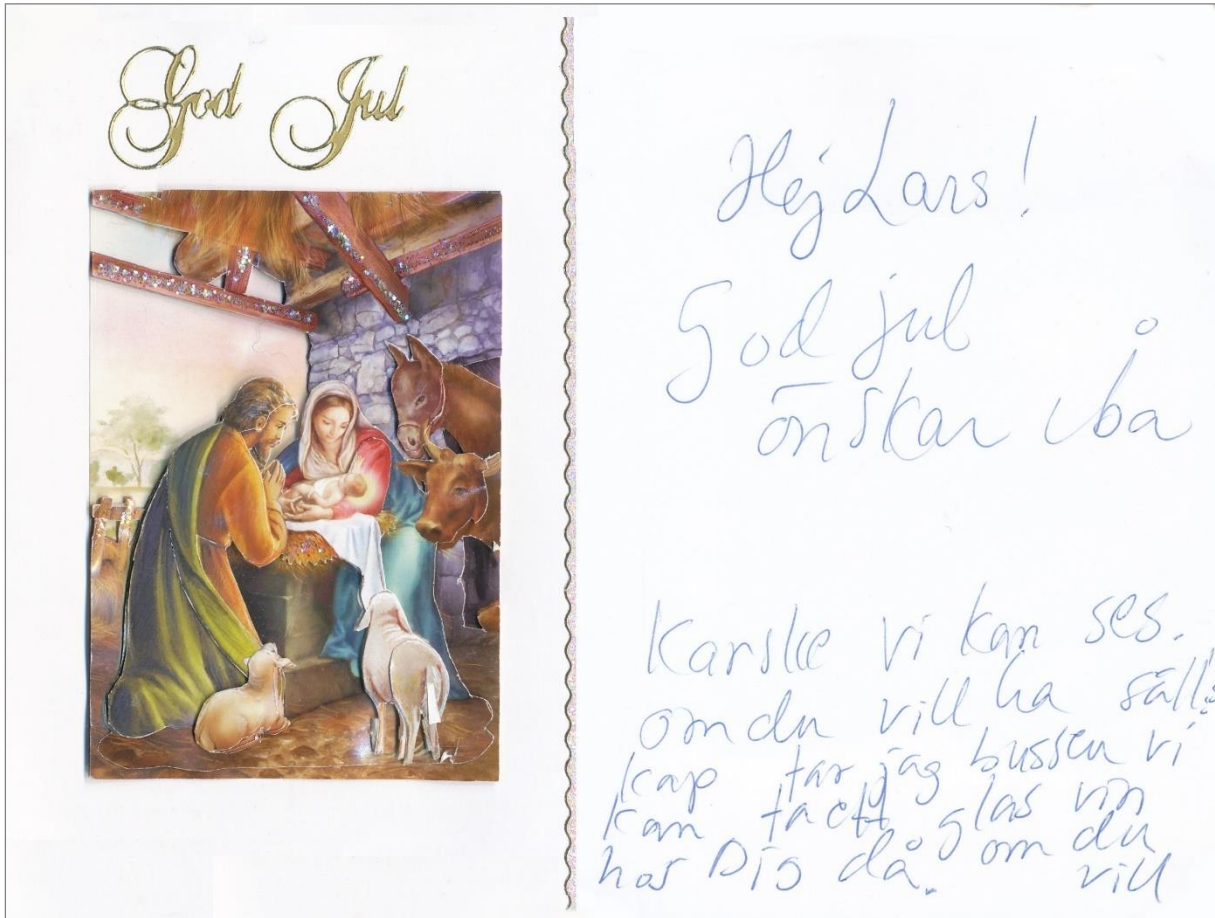 God Jul
Hej Lars!
God jul
önskar
Kanske vi kan ses.
om du vill ha säll-
kap tar jag bussen vi
kan ta ett glas vin
hos Dig då. om du
vill